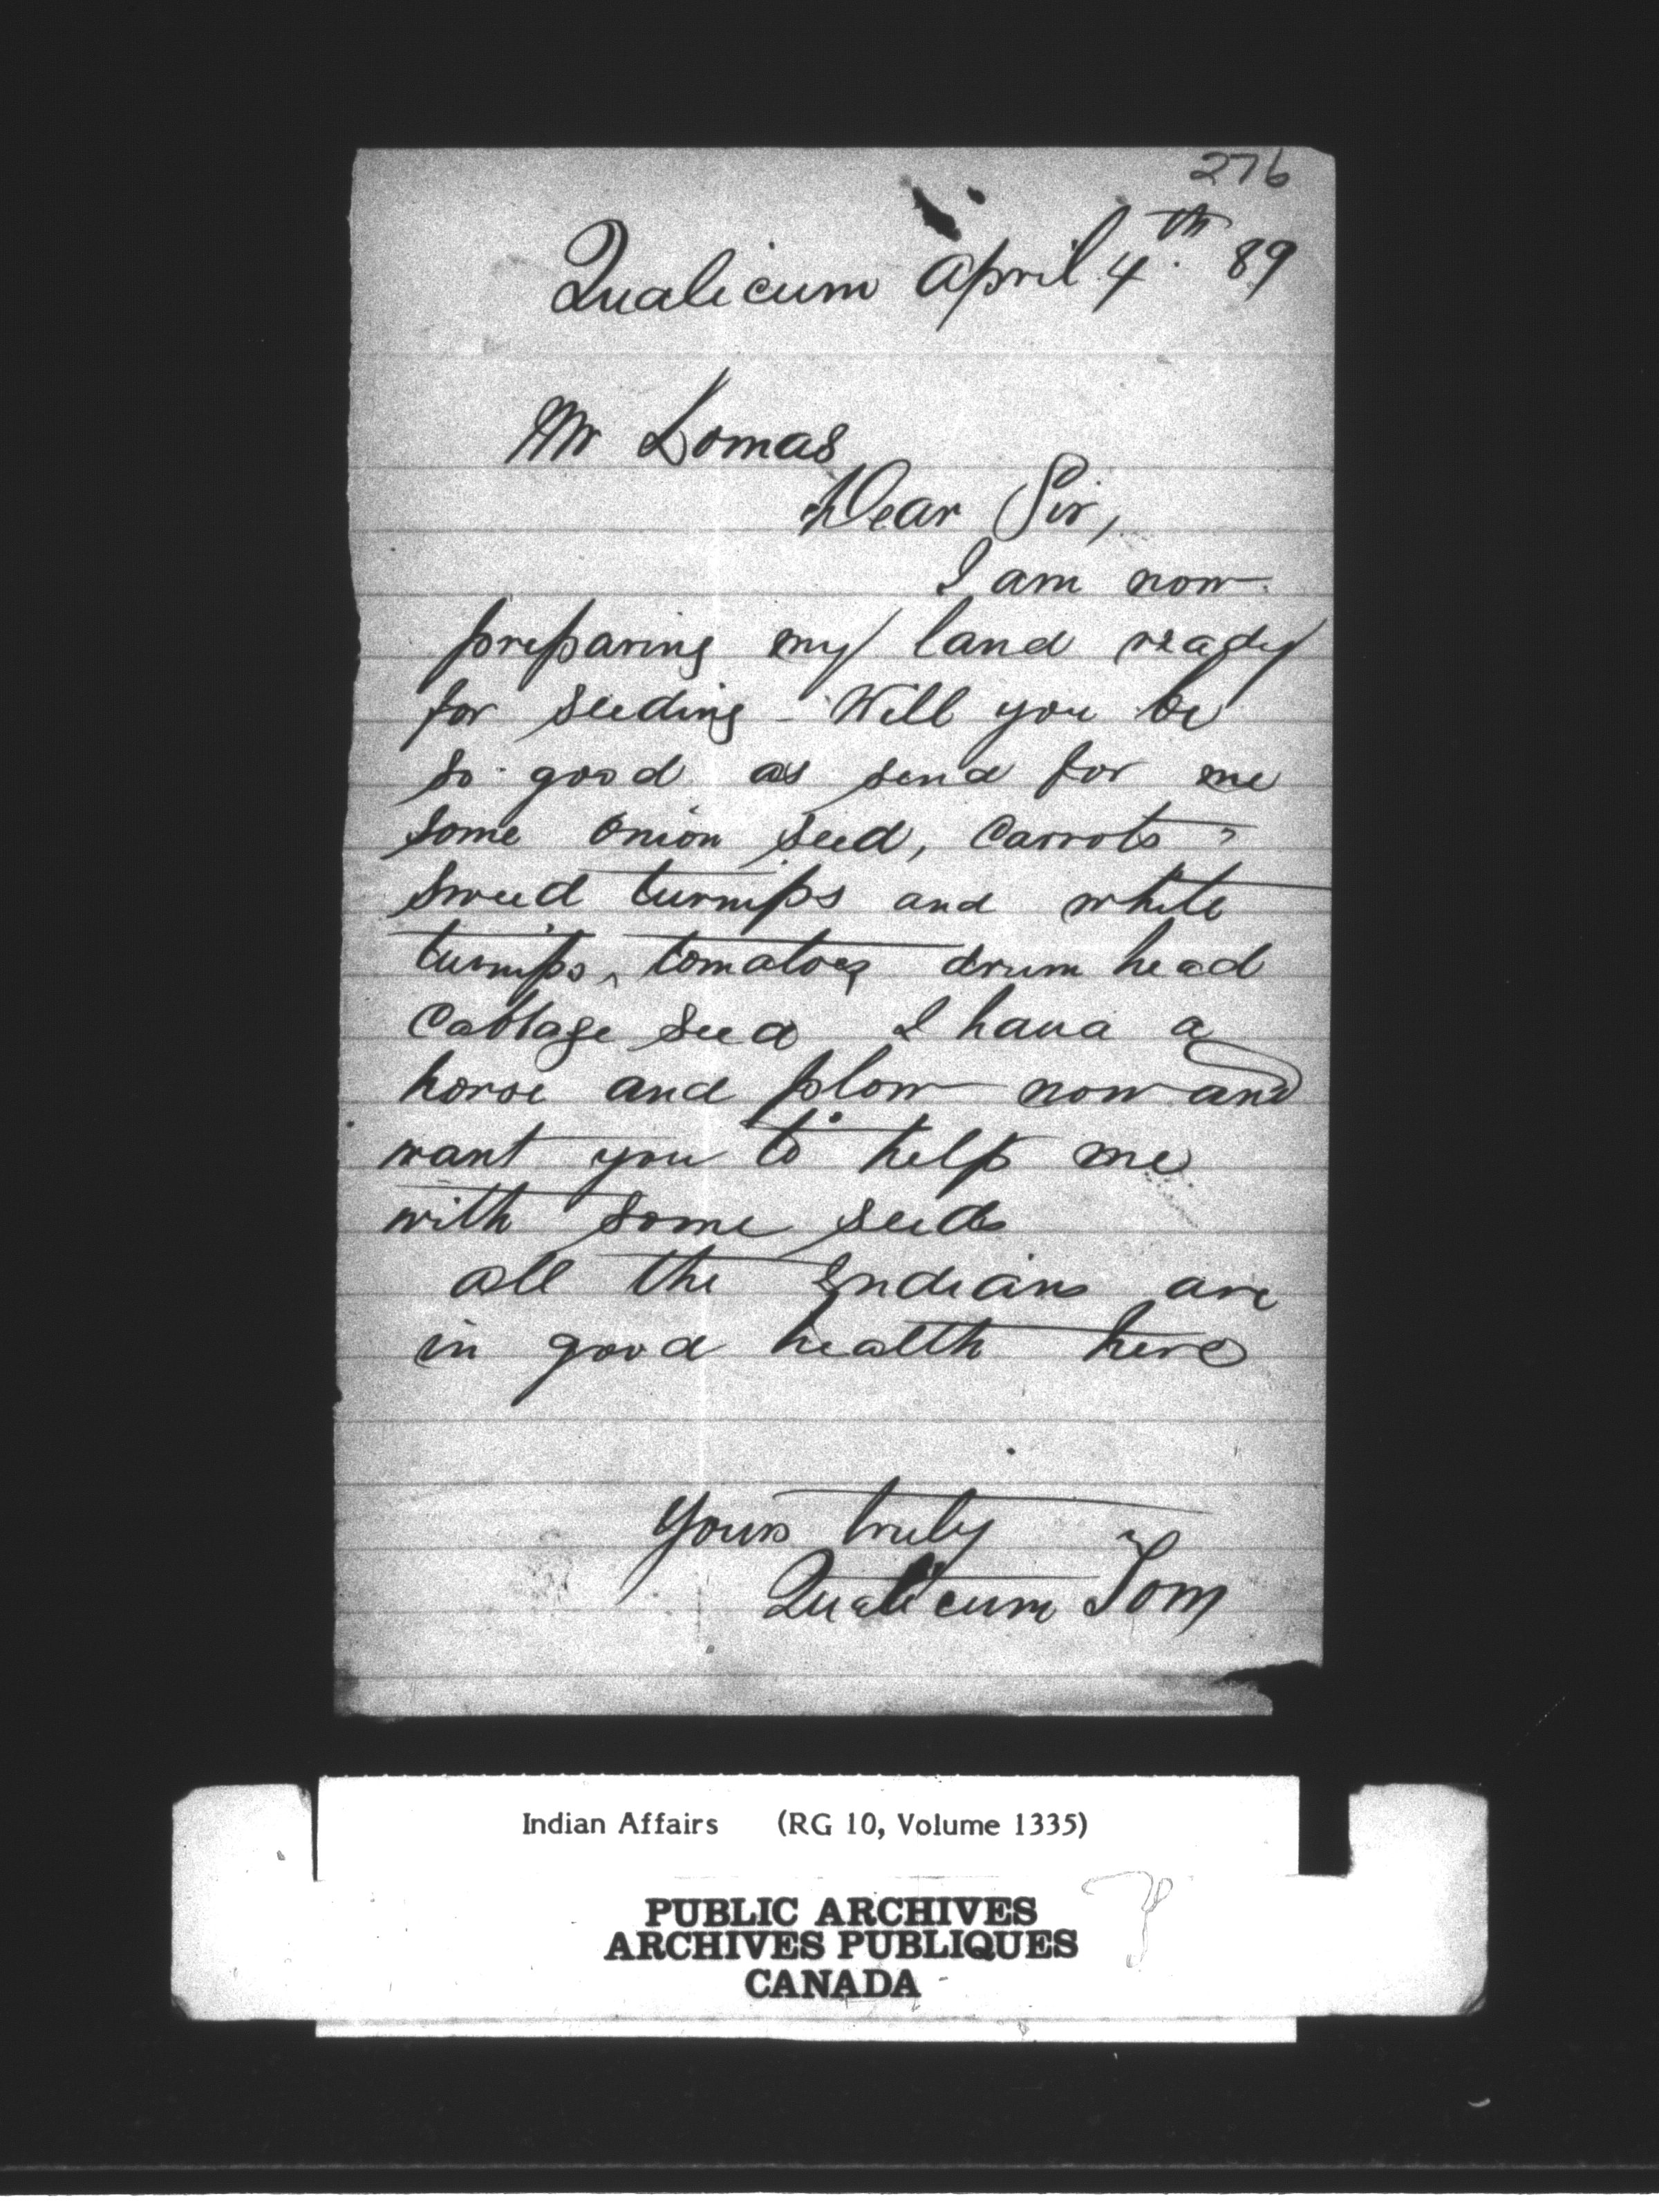 276
Qualicum April 4th. 89
Mr Lomas
Dear Sir,
I am now
preparing my land ready
for seeding - Will you be
so good as send for me
some onion seed, Carrots,
sweed turnips and white
turnips, tomatoes drum head
Cabbage seed I hava a
horse and plow now and
want you to help me
with some seeds
all the Indians are
in good health here
Yours truly
Qualicum Tom
Indian Affairs (RG 10, Volume 1335)
PUBLIC ARCHIVES
ARCHIVES PUBLIQUES
CANADA